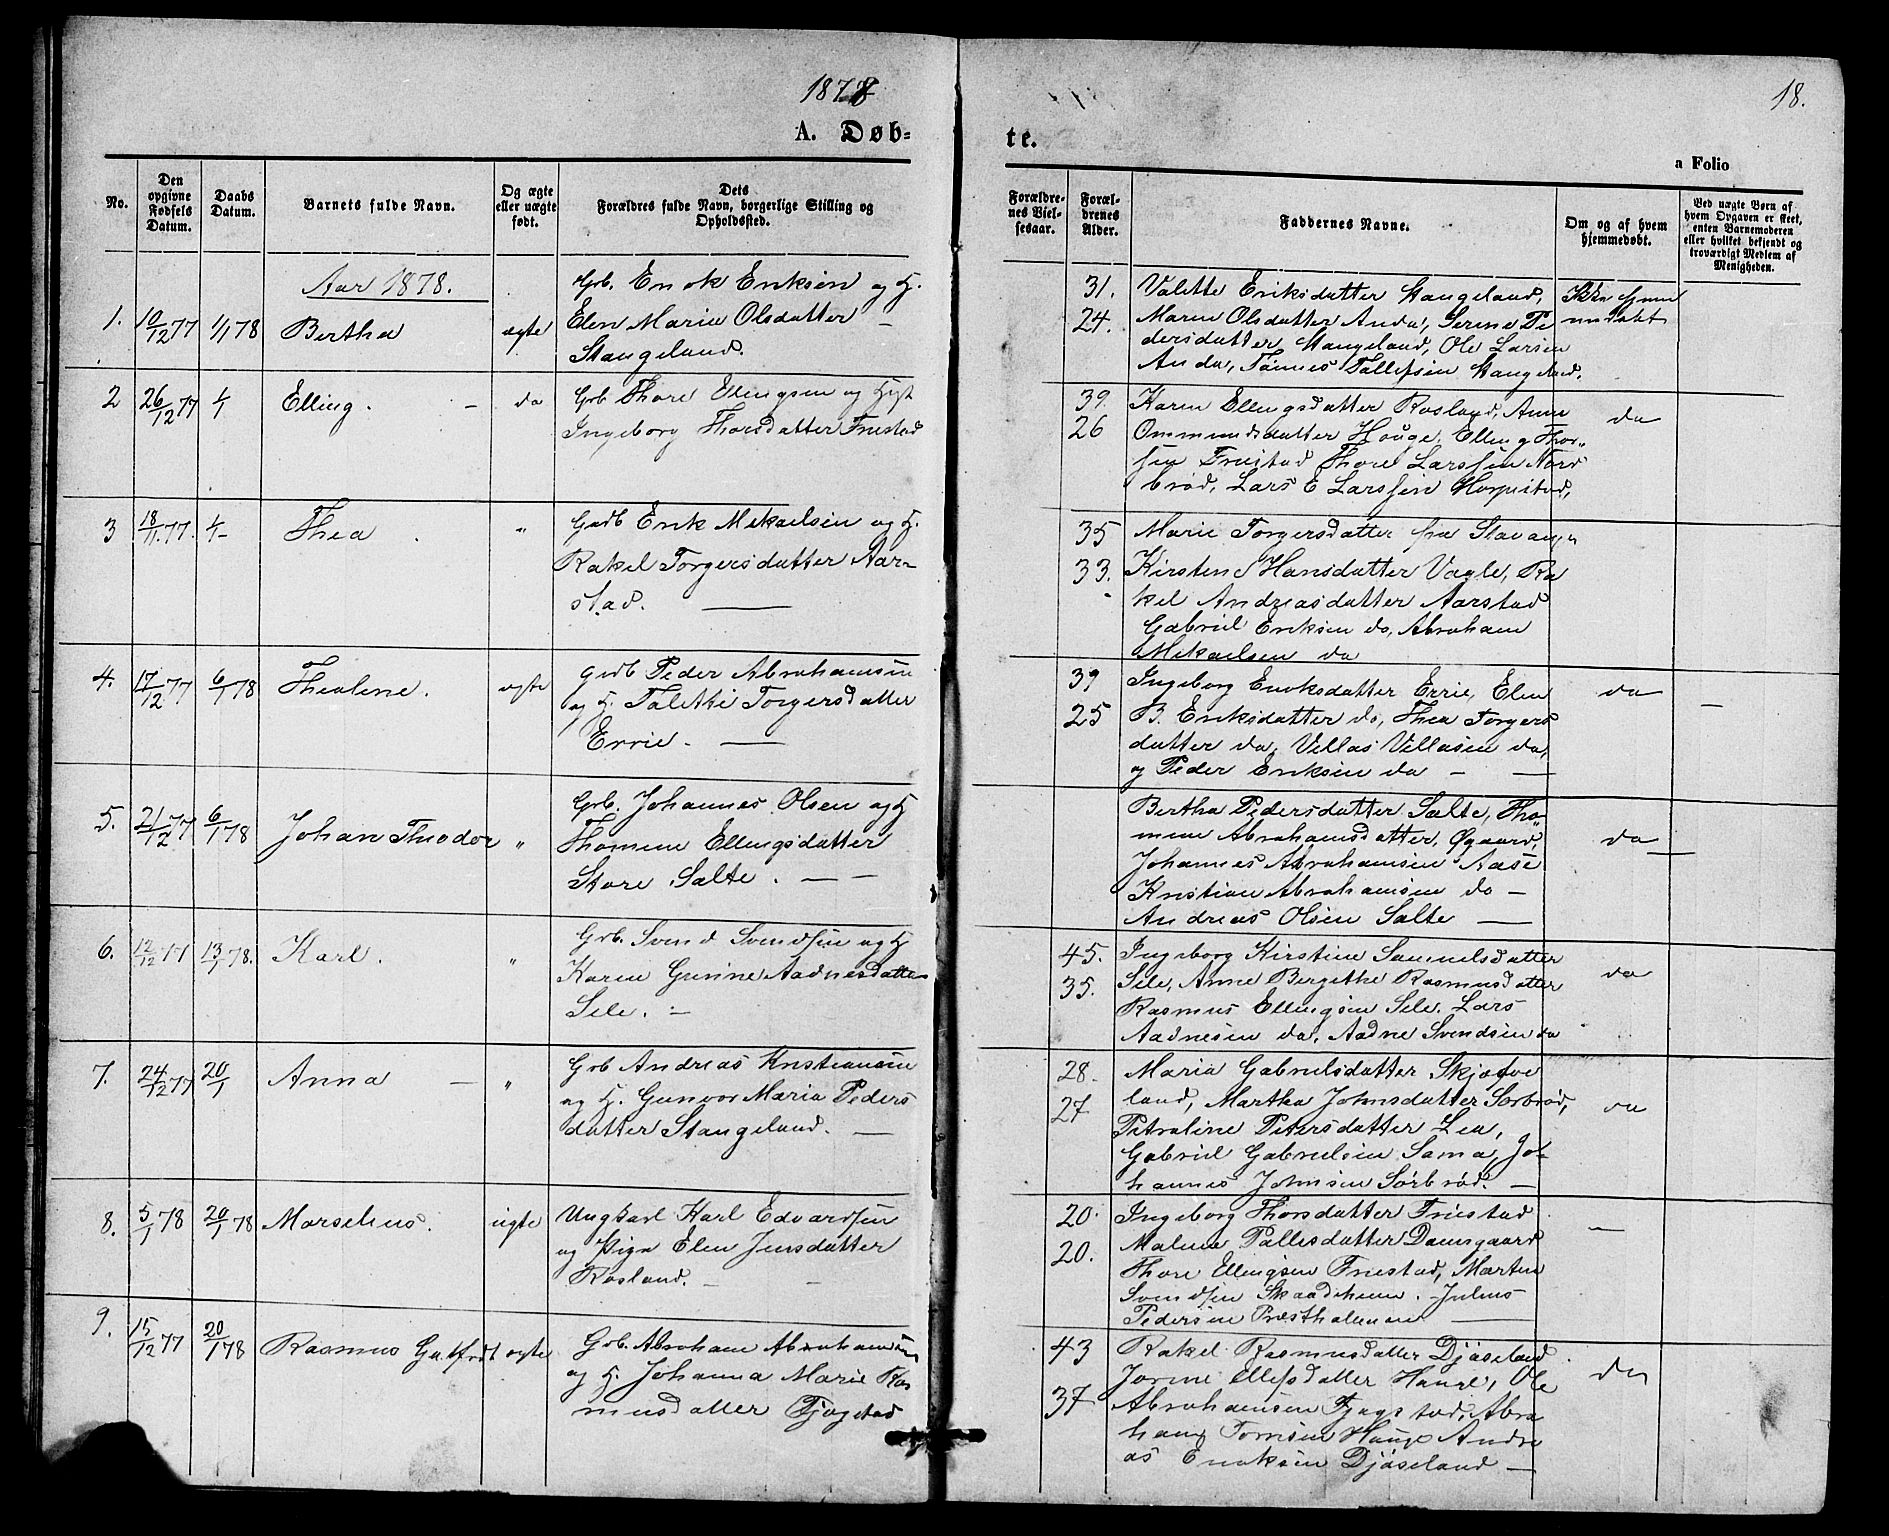 1878
18.
A. Døb-
te.
a Folio
No.
Den opgivne Fødsels Datum.
Daabs Datum.
Barnets fulde Navn.
Og ægte eller uægte født.
Dets Forældres fulde Navn, borgerlige Stilling og Opholdssted.
Forældrenes Vielsesaar.
Forældrenes Alder.
Faddernes Navne.
Om og af hvem hjemmedøbt.
Ved uægte Børn af hvem Opgaven er skeet, enten Barnemoderen eller hvilket bekjendt og troværdigt Medlem af Menigheden.
Aar 1878.
1. 10/12 77 1/1 78 Bertha ægte
Grb. Enok Eriksen og H.
Elen Maria Olsdatter –
Stangeland.
31.
24.
Valette Eriksdatter Stangeland,
Maren Olsdatter Anda, Serine Pe
dersdatter Stangeland, Ole Larsen
Anda, Tønnes Tollefsen Stangeland.
2 26/12 77 1/1 Elling. – do
Grb Thore Ellingsen og Hst
Ingeborg Thorsdatter Friestad
39.
26
Karen Ellingsdatter Rosland, Anne
Ommundsdatter Hauge, Elling Thor-
sen Friestad Thorel Larssen Nord
brød, Lars E Larssen Horpestad,
do
3 18/11 77. 1/1 Thea . "
Grdb Erik Mikaelsen og H.
Rakel Torgersdatter Aar-
stad.
35
33.
Marie Torgersdatter fra Stavanger
Kirstine Hansdatter Vagle, Ra
kel Andreasdatter Aarstad
Gabriel Eriksen do, Abraham
Mikaelsen do
4. 17/12 77 6/1 78 Thealene. ægte
Grdb Peder Abrahamsen
og H. Talette Torgersdatter
Errie. –
39
25
Ingeborg Enoksdatter Errie, Elen
B. Eriksdatter do, Thea Torgers
datter do, Villas Villasen do,
og Peder Eriksen do –
do
5. 21/12 77 6/1 78 Johan Theodor "
Grb. Johannes Olsen og H
Thomine Ellingsdatter
Store Salte. – –
Bertha Pedersdatter Salte, Tho-
mine Abrahamsdatter, Øgaard,
Johannes Abrahamsen Aase
Kristian Abrahamsen do –
Andreas Olsen Salte –
do
6. 12/12 77 13/1 78. Karl. "
Grb. Svend Svendsen og H
Karen Gurine Aadnesdatter
Sele. –
45.
35.
Ingeborg Kirstine Samuelsdatter
Sele, Anne Bergithe Rasmusdatter
Rasmus Ellingsen Sele. Lars
Aadnesen do, Aadne Svendsen do
do
7. 24/12 77 20/1 Anna – "
Grb Andreas Kristiansen
og H. Gunvor Maria Peders
datter Stangeland. –
28.
27
Maria Gabrielsdatter Skjæve
land, Martha Johnsdatter Sørbrød,
Petraline Petersdatter Lea,
Gabriel Gabrielsen Soma, Jo-
hannes Johnsen Sørbrød. –
do
8. 5/1 78 20/1 78 Marselius. uægte
Ungkarl Karl Edvardsen
og Pige Elen Jensdatter
Rosland. –
20.
20.
Ingeborg Thorsdatter Friestad
Malene Pallesdatter Damsgaard
Thore Ellingsen Friestad, Morten
Svendsen Skaadeheim. Julius
Pedersen Præstholmen
–
9. 15/12 77 20/1 78 Rasmus Gutfridt ægte
Grb. Abraham Abrahamsen
og H. Johanna Marie Ras
musdatter Tjøgstad
43
37
Rakel Rasmusdatter Djøseland
Jorine Ellefsdatter Hauge, Ole
Abrahamsen Tjøgstad, Abra
ham Tørresen Hauge Andre
as Enoksen Djøseland –
do